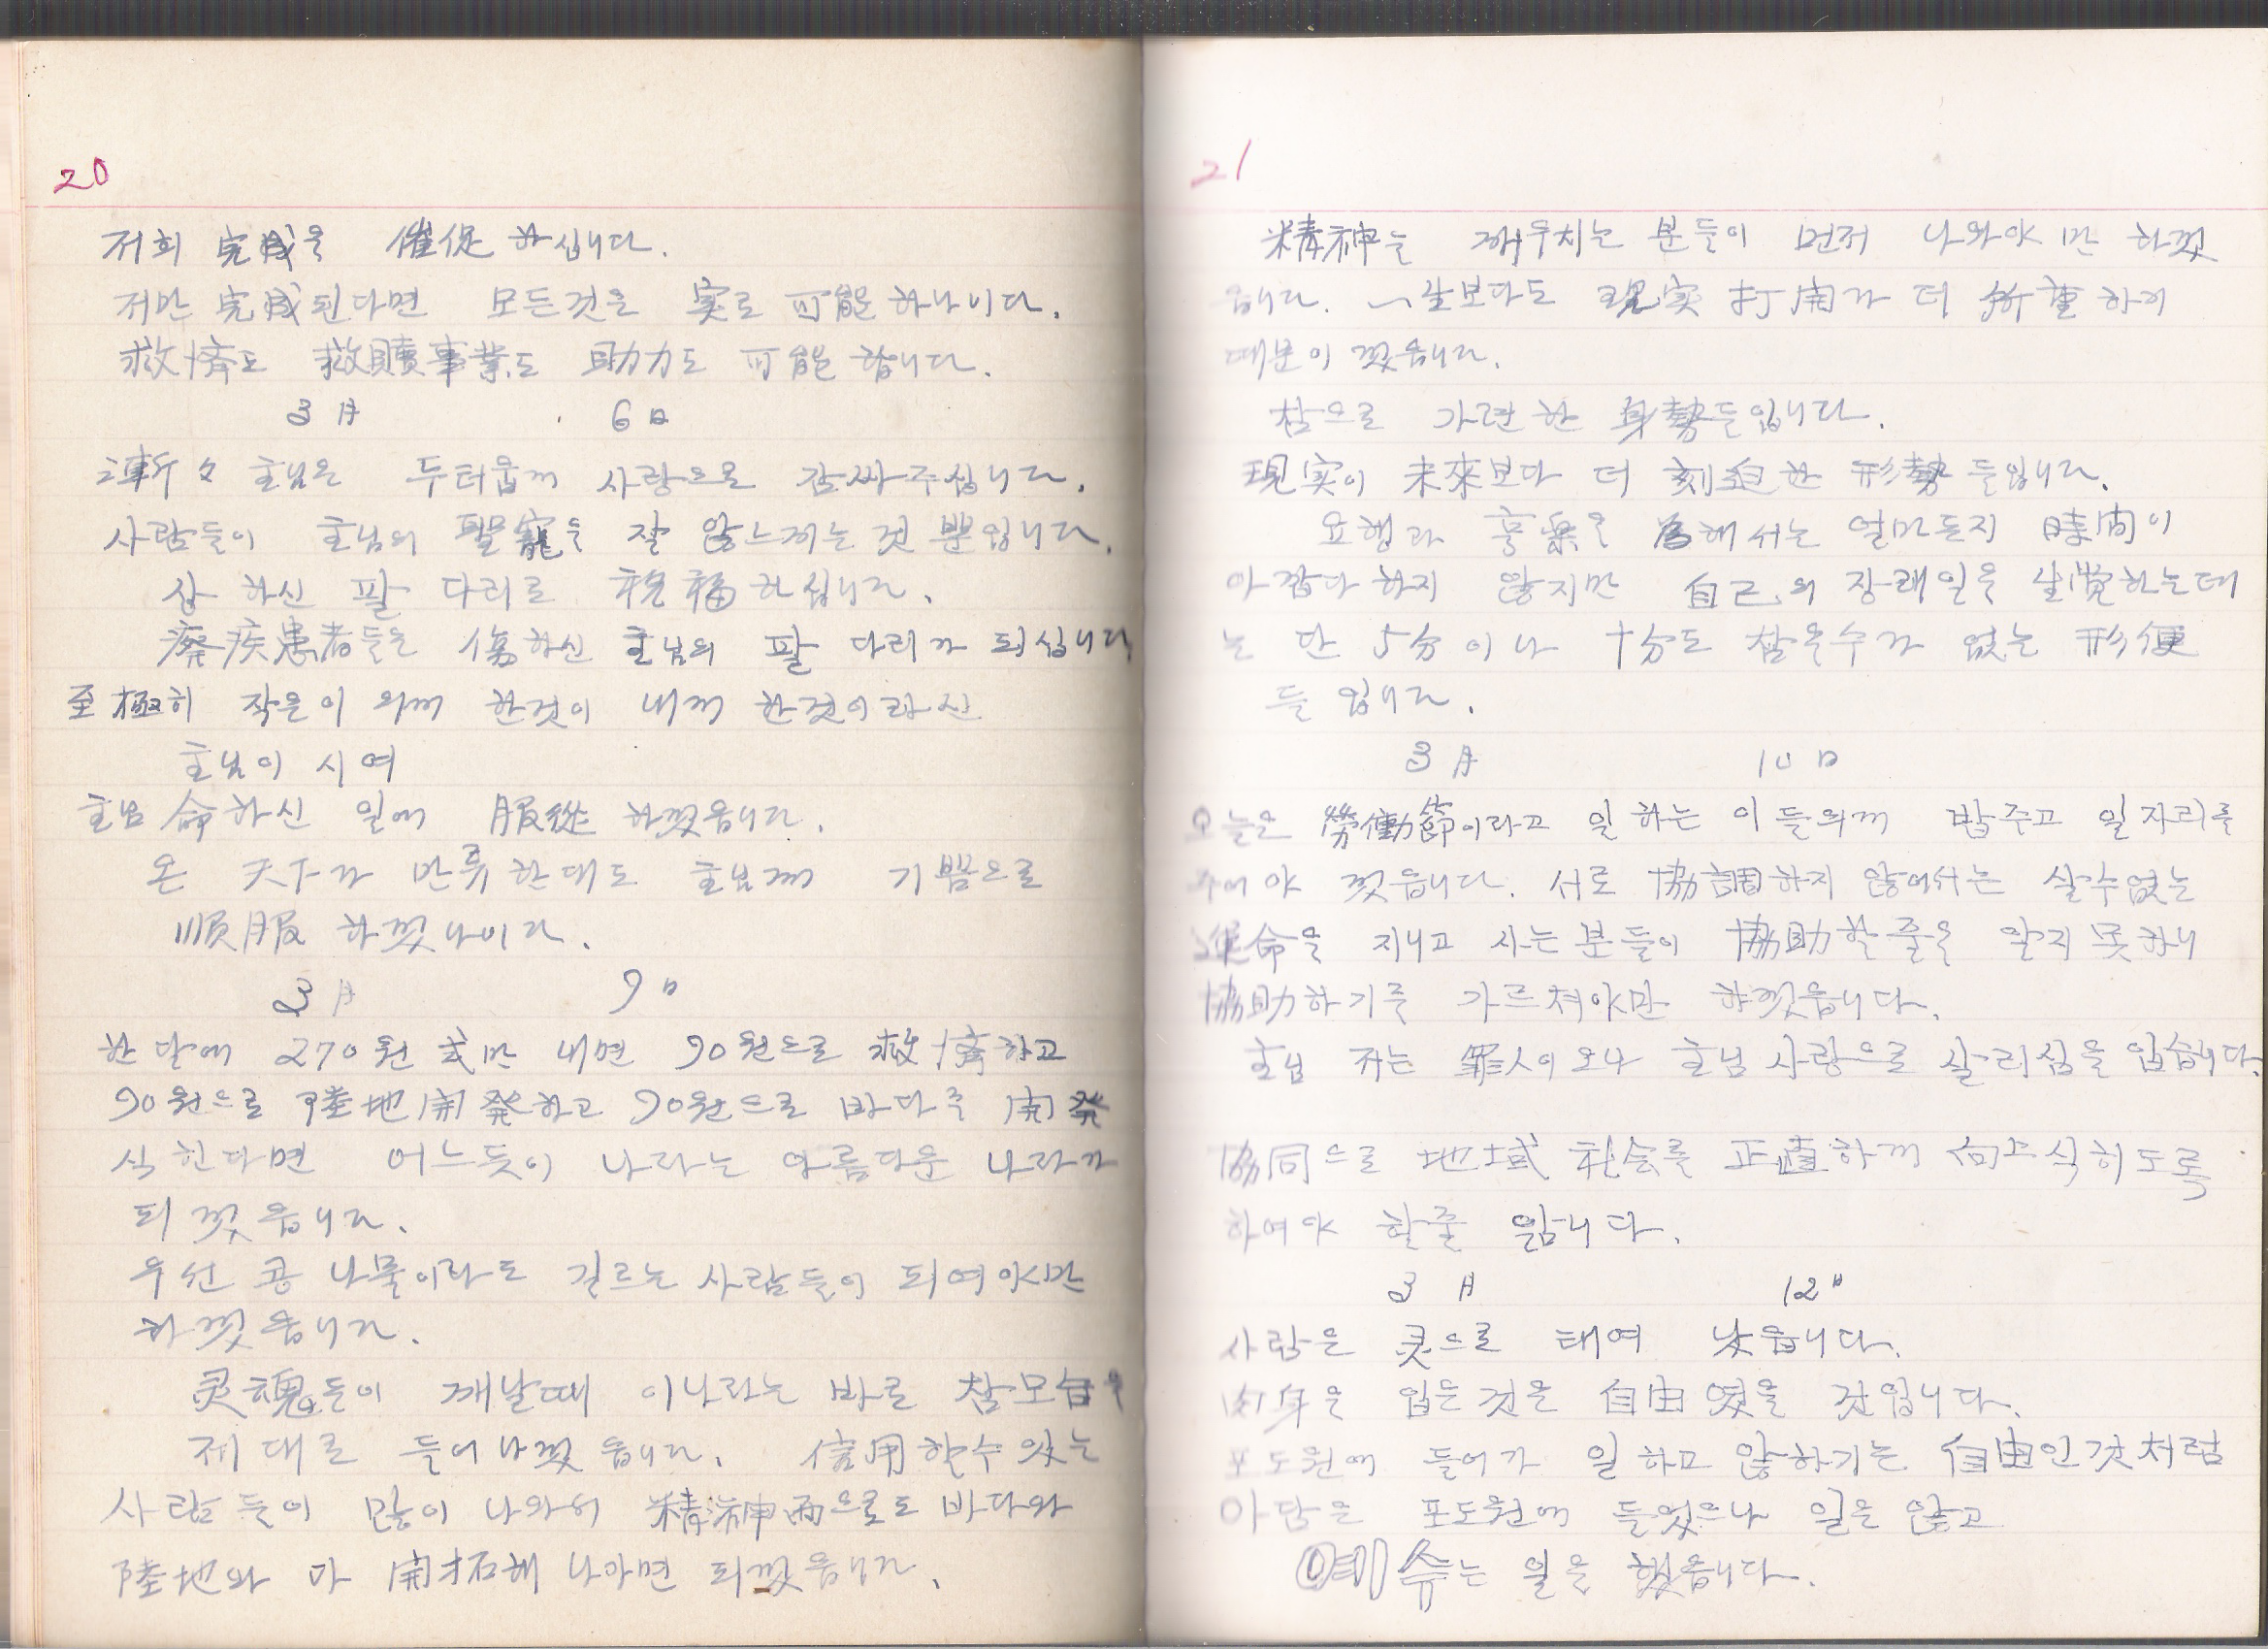 20
저희 完成을 催促 하십니다.
저만 完成된다면 모든것을 実로 可能하나이다.
救済도 救贖事業도 助力도 可能 합니다.
3月 6日
漸々 主님은 두터웁께 사랑으로 감싸주십니다.
사람들이 主님의 聖寵을 잘 않느끼는 것 뿐입니다.
상 하신 팔 다리로 祝福하십니다.
癈疾患者들은 傷하신 主님의 팔 다리가 되십니다
至極히 작은이 의께 한것이 내께 한것이라신
主님이 시여
主님 命하신 일에 服從 하겠읍니다.
온 天下가 만류한대도 主님께 기쁨으로
順服 하겠나이다.
3月 9日
한달에 270원 式만 내면 90원으로 救済하고
90원으로 陸地開発하고 90원으로 바다를 開発
식힌다면 어느듯이 나라는 아름다운 나라가
되겠읍니다.
우선 콩 나물이라도 길르는 사람들이 되여야만
하겠읍니다.
灵魂들이 깨날때 이나라는 바로 참모습을
제대로 들어나겠읍니다. 信用할수 있는
사람들이 많이 나와서 精神面으로도 바다와
陸地와 다 開拓해 나아가면 되겠읍니다.
21
精神을 깨우치는 분들이 먼저 나와야만 하겠
읍니다. 一生보다도 現実 打開가 더 所重하기
때문이겠읍니다.
참으로 가련한 身勢들입니다.
現実이 未來보다 더 刻迫한 形勢들입니다.
요행과 享楽을 為해서는 얼마든지 時間이
아깝다하지 않지만 自己의 장래일을 生覚하는데
는 단 5分이나 十分도 참을수가 없는 形便
들 입니다.
3月 10日
오늘은 勞働節이라고 일하는 이들의께 밥주고 일자리를
주어야 겠읍니다. 서로 協調하지 않어서는 살수없는
運命을 지니고 사는분들이 協助할줄을 알지 못하니
協助하기를 가르쳐야만 하겠읍니다.
主님 저는 罪人이오나 主님 사랑으로 살리심을 입습니다.
協同으로 地域 社会를 正直하게 向上식히도록
하여야 할줄 압니다.
3月 12日
사람은 灵으로 태여 났읍니다.
肉身을 입은것은 自由였을 것입니다.
포도원에 들어가 일하고 않하기는 自由인것처럼
아담은 포도원에 들었으나 일은 않고
예수는 일을 했읍니다.